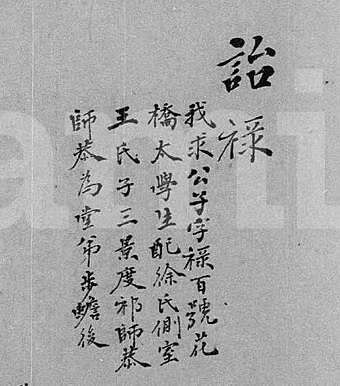 詒祿
我求公子字祿百號花
橋太學生配徐氏側室
王氏子三景度祁師恭
師恭為堂弟步蟾後